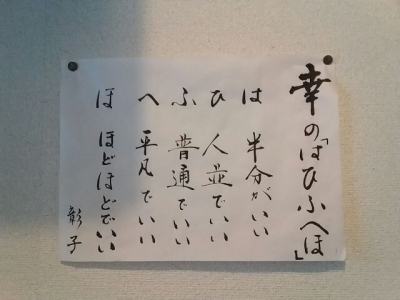 幸の「はひふへほ」
は 半分がいい
ひ 人並でいい
ふ 普通でいい
へ 平凡でいい
ほ ほどほどでいい
彰子